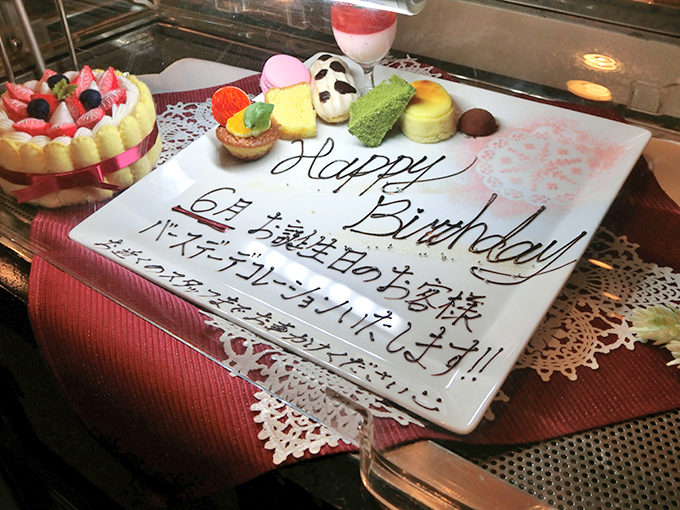 Happy
Birthday
6月 お誕生日のお客様
バースデーデコレーションいたします!!
お近くのスタッフまでお声がけください